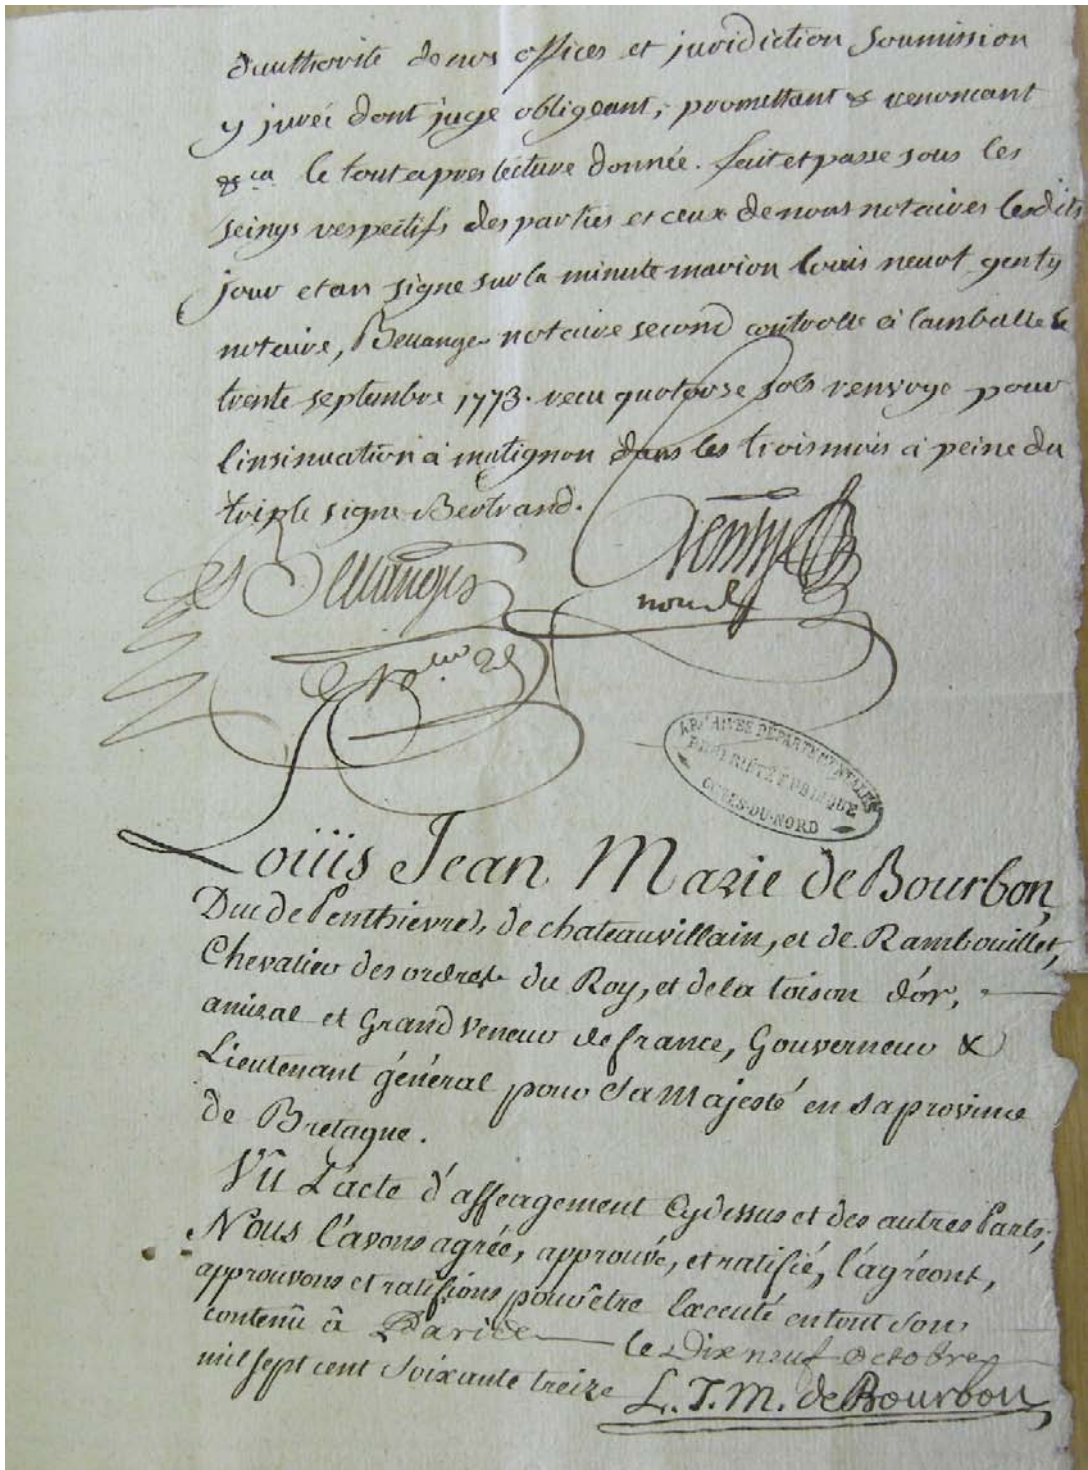 d'authorité de nos offices et juridiction Soumission
y jurée dont juge obligeant, promettant & renoncant
&ca le tout apres lecture donnée. fait et passe sous les
seings respectifs des parties et ceux de nous notaires lesdits
jour et an signe sur la minute marion louis neuot genty
notaire, Bellanger notaire second controlle à lamballe le
trente septembre 1773. recu quatorse sols renvoye pour
l'insinuation à matignon dans les trois mois à peine du
triple signe Bertrand.
Genty
Bellanger
ARCHIVES DÉPARTEMENTALES
PROPRIÉTÉ PUBLIQUE
COTES-DU-NORD
Loüis Jean Marie de Bourbon,
Duc de Penthievre, de chateauvillain, et de Rambouillet,
Chevalier des ordres du Roy, et de la toison d'or,
amiral et Grand Veneur de france, Gouverneur &
Lieutenant général pour Sa Majesté en sa province
de Bretagne.
Vû L'acte d'afféagement Cy dessus et des autres Parts,
Nous l'avons agréé, approuvé, et ratifié, l'agréons,
approuvons et ratifions pour être Executé en tout son
contenû à Paris le Dix neuf octobre
mil sept cent soixante treize L. J. M. de Bourbon